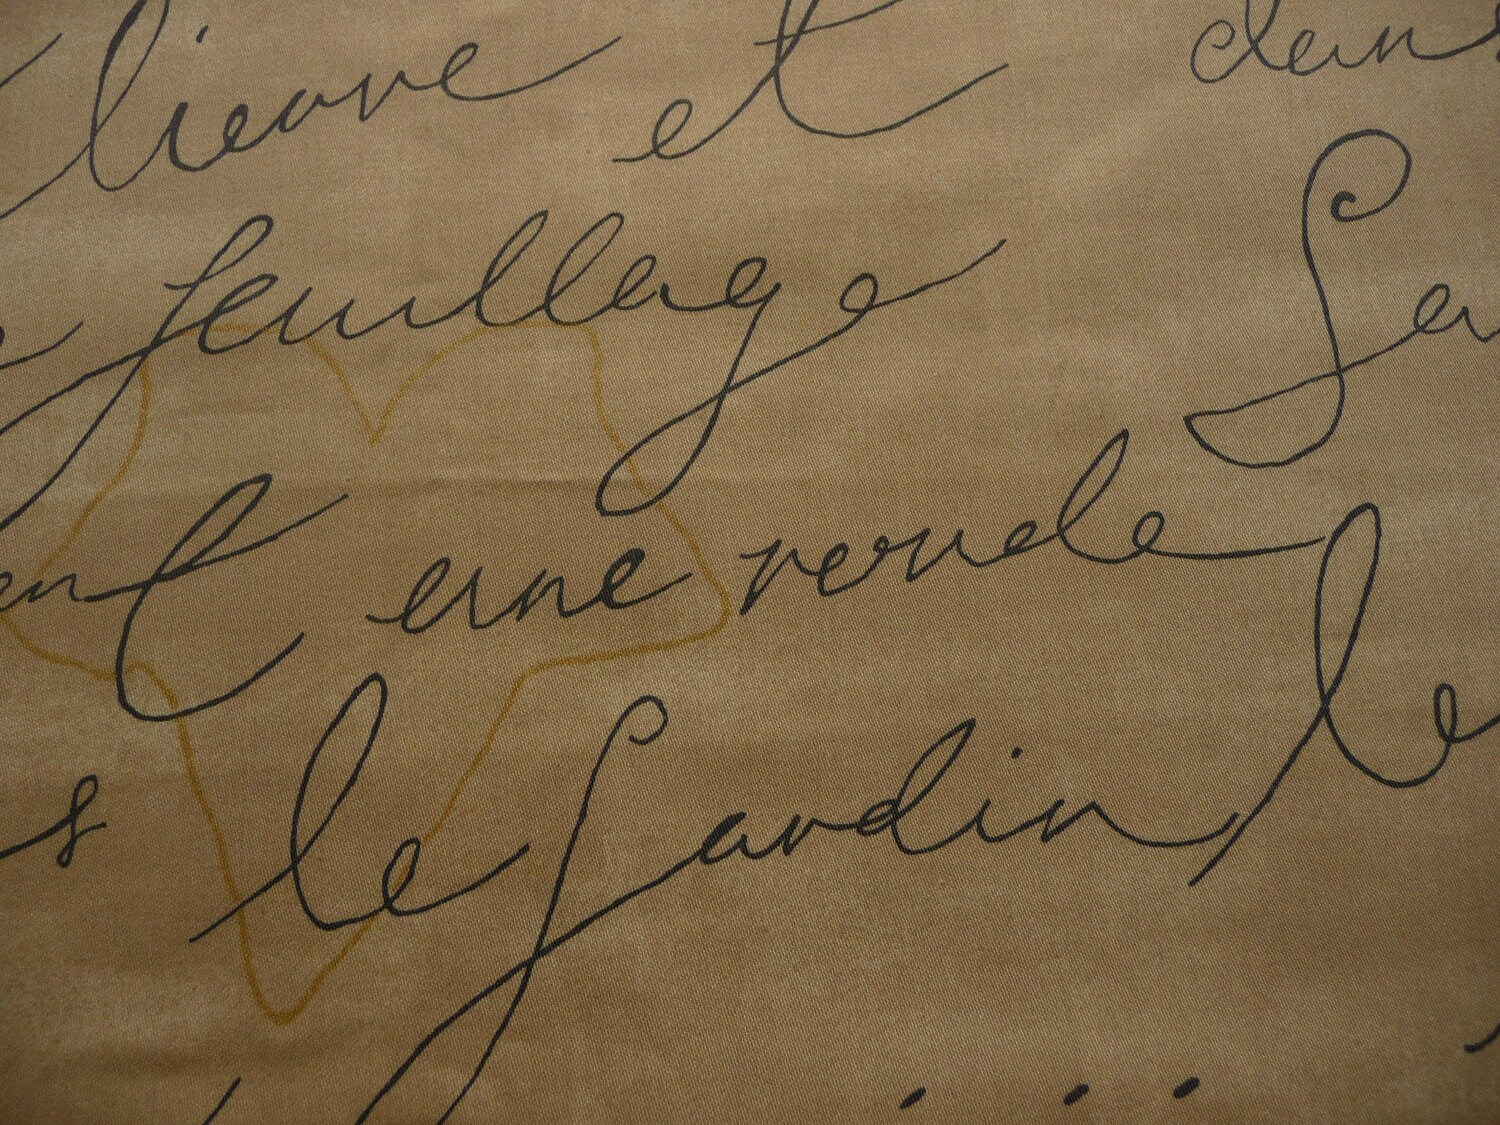 lierre et dans
feuillage
ent une ronde
le Jardin le